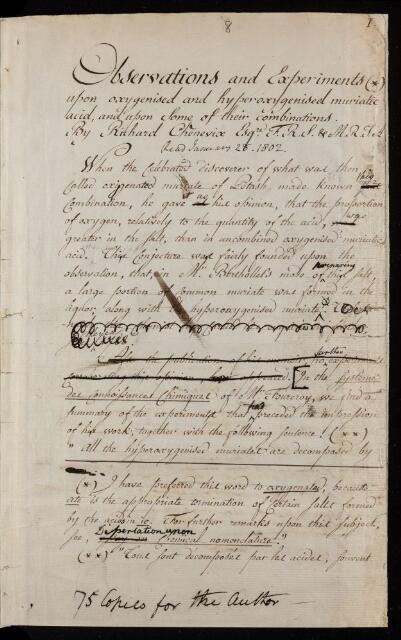 8
1
Observations and Experiments (×)
upon oxygenised and hyperoxygenised muriatic
acid, and upon some of their combinations.
By Richard Chenevix Esqre. F.R.S. & M.R.I.A
Read January 28. 1802.
When the celebrated discoverer of what was then
called oxigenated muriate of Potash, made known
combination, he gave his opinion, that the proportion
of oxygen, relatively to the quantity of the acid,
greater in the salt, than in uncombined oxygenised muriatic
acid. This Conjecture was fairly founded upon the
observation, that, in Mr. Berthollet's mode of preparing this salt,
a large portion of common muriate was formed in the
liquor, along with hyperoxygenised muriate.
further
In the Systeme
des connoissances chimiques of Mr. Fourcroy, we find a
summary of the experiments that preceded the impression
of his work; together with the following sentence! (××)
"All the hyperoxygenised muriates are decomposed by
(×) I have preferred this word to oxygenated, because
ate is the appropriate termination of certain salts formed
by the acids in ic. For further remarks upon this subject,
see, Dissertation upon Chemical nomenclature."
(××) "Tous sont decomposés par les acides, souvent
75 Copies for the Author